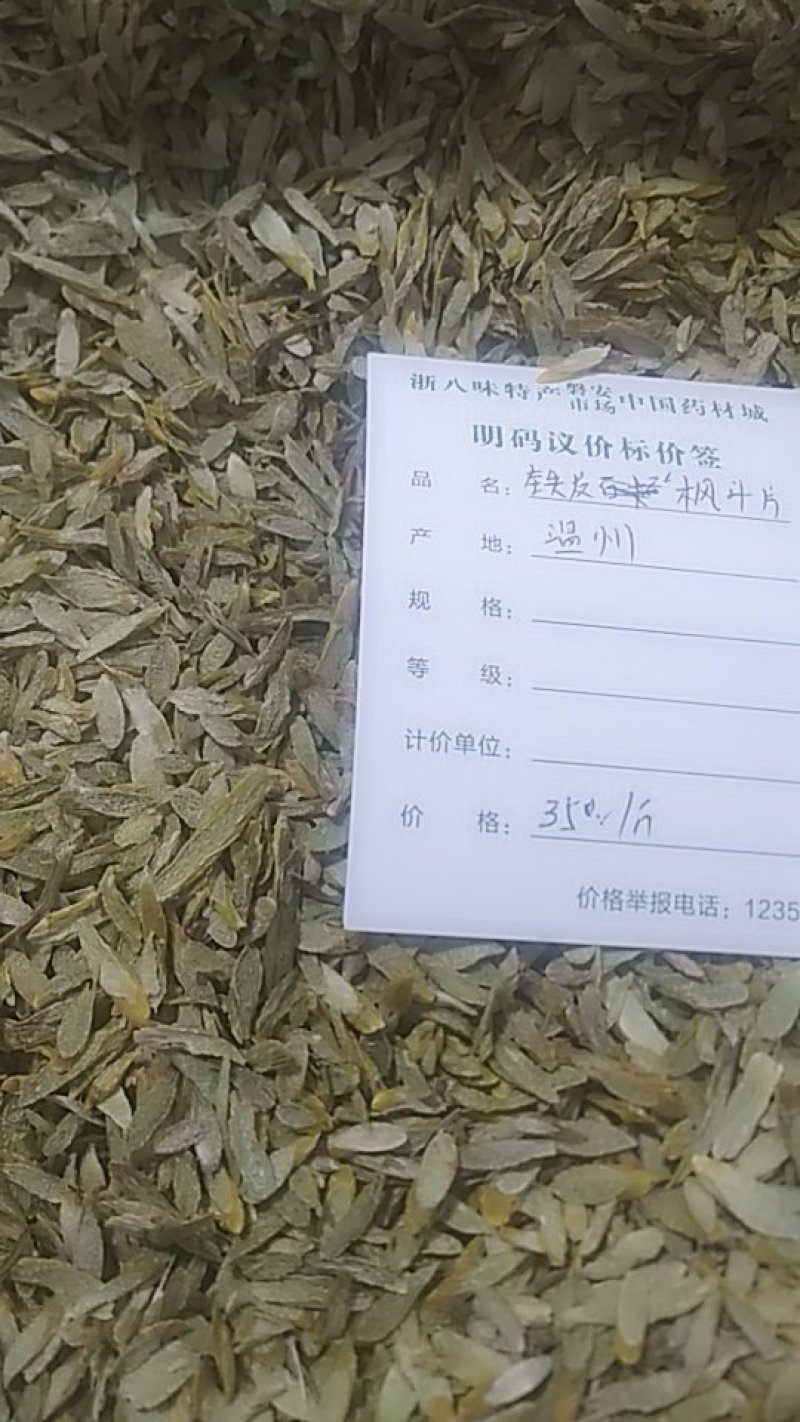 浙八味特产贸易市场中国药材城
明码议价标价签
品名：铁皮枫斗片
产地：温州
规格：
等级：
计价单位：
价格：350./斤
价格举报电话：1235